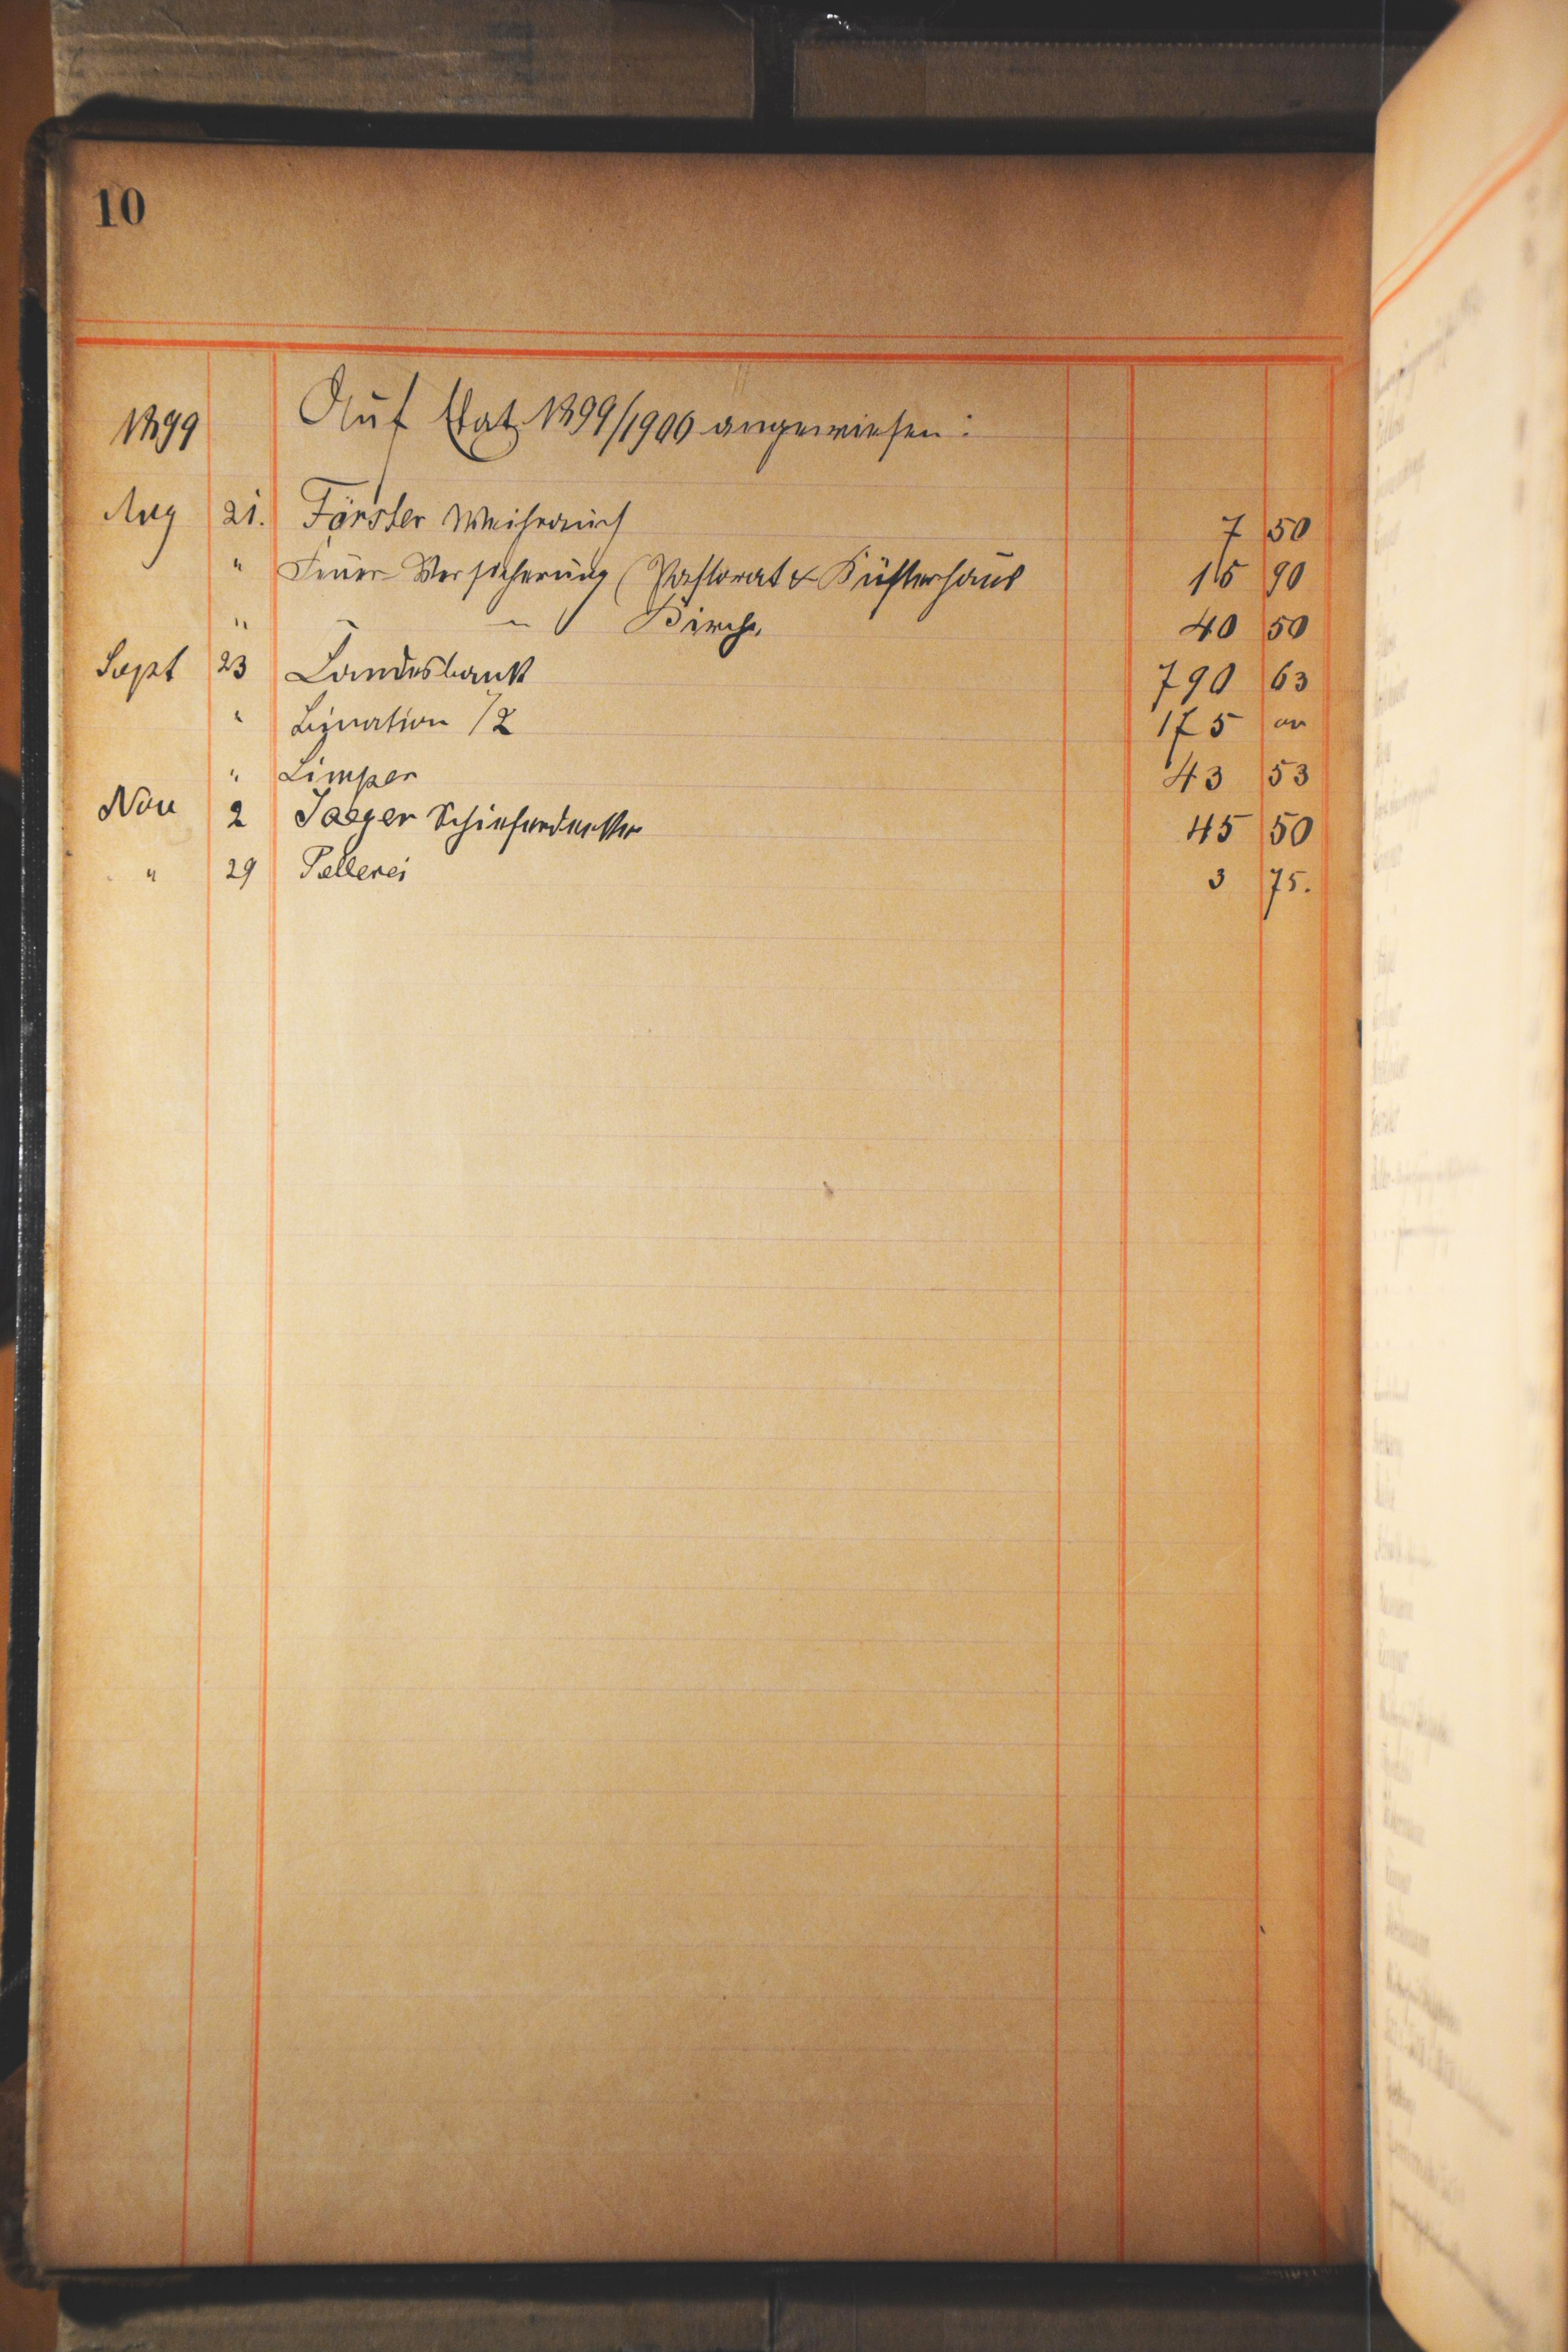 10
1899 Auf Etat 1899/1900 angewiesen:
Aug 21. Förster Weihrauch 7 50
" Feuer-Versicherung (Pastorat & Küsterhaus 15 90
" " " Kirche 40 50
Sept 23 Landesbank 790 63
" /2 175 00
" Limper 43 53
Nov 2 Jaeger Schieferdecker 45 50
" 29 Pellerei 3 75.